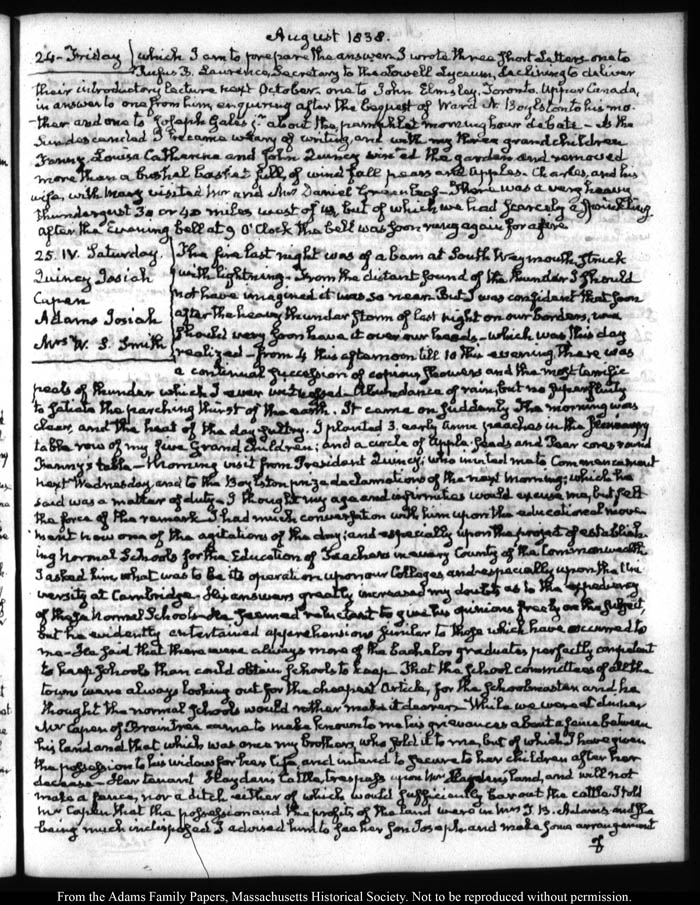 August 1838.
24. Friday } which I am to prepare the answer. I wrote three short Letters one to
Rufus B. Lawrence, Secretary to the Lowell Lyceum, declining to deliver
their introductory lecture next October. one to John Elmsley, Toronto, Upper Canada,
in answer to one from him, enquiring after the bequest of Ward N. Boylston to his mo-
ther and one to Joseph Gales jr. about the pamphlet morning hour debate – As the
Sun descended I became weary of writing, and with my three grandchildren
Fanny, Louisa Catherine and John Quincy visited the garden and removed
more than a bushel basket full, of wind fall pears and apples. Charles, and his
wife, with Mary visited Mr and Mrs Daniel Greenleaf – There was a very heavy
thundergust 30 or 40 miles west of us, but of which we had scarcely a sprinkling.
after the Evening bell at 9 O'Clock the bell was soon rung again for a fire
25. IV. Saturday.
Quincy Josiah
Capen
Adams Josiah
Mrs W. S. Smith
The fire last night was of a barn at South Weymouth, struck
with lightning – From the distant sound of the thunder I should
not have imagined it was so near. But I was confident that soon
after the heavy thunder storm of last night on our borders, we
should very soon have it over our heads – which was this day
realized – from 4 this afternoon till 10 this evening, there was
a continual succession of copious showers and the most terrific
peals of thunder which I ever witnessed – Abundance of rain, but no superfluity
to satiate the parching thirst of the earth. It came on suddenly The morning was
clear, and the heat of the day sultry. I planted 3. early Anne peaches in the
table row of my five Grand Children; and a circle of apple-seeds and Pear cores round
Fanny's table – Morning visit from President Quincy; who invited me to Commencement
next Wednesday, and to the Boylston prize declamations of the next morning; which he
said was a matter of duty – I thought my age and infirmities would excuse me, but felt
the force of the remark. I had much conversation with him upon the educational move-
ment now one of the agitations of the day; and especially upon the project of establish-
ing Normal Schools for the Education of Teachers in every County of the Commonwealth
I asked him what was to be its operation upon our Colleges and especially upon the Uni
versity at Cambridge. His answers greatly increased my doubts as to the expediency
of these Normal Schools – He seemed reluctant to give his opinions freely on the subject,
but he evidently entertained apprehensions similar to those which have occurred to
me – He said that there were always more of the Bachelor graduates perfectly competent
to keep schools than could obtain schools to keep. That the school committees of all the
towns were always looking out for the cheapest Article, for the schoolmaster and he
thought the normal schools would rather make it dearer. While we were at dinner
Mr Capen of Braintree came to make known to me his grievances about a fence between
his land and that which was once my brother's, who sold it to me, but of which I have given
the possession to his widow for her life, and intend to secure to her children after her
decease – Her tenant Hayden's Cattle, trespass upon Mr land, and will not
make a fence, nor a ditch either of which would sufficiently bar out the cattle. I told
Mr Capen that the possession and the profits of the land were in Mrs T. B. Adams and she
being much indisposed I advised him to see her son Joseph. and make some arrangement
of
From the Adams Family Papers, Massachusetts Historical Society. Not to be reproduced without permission.